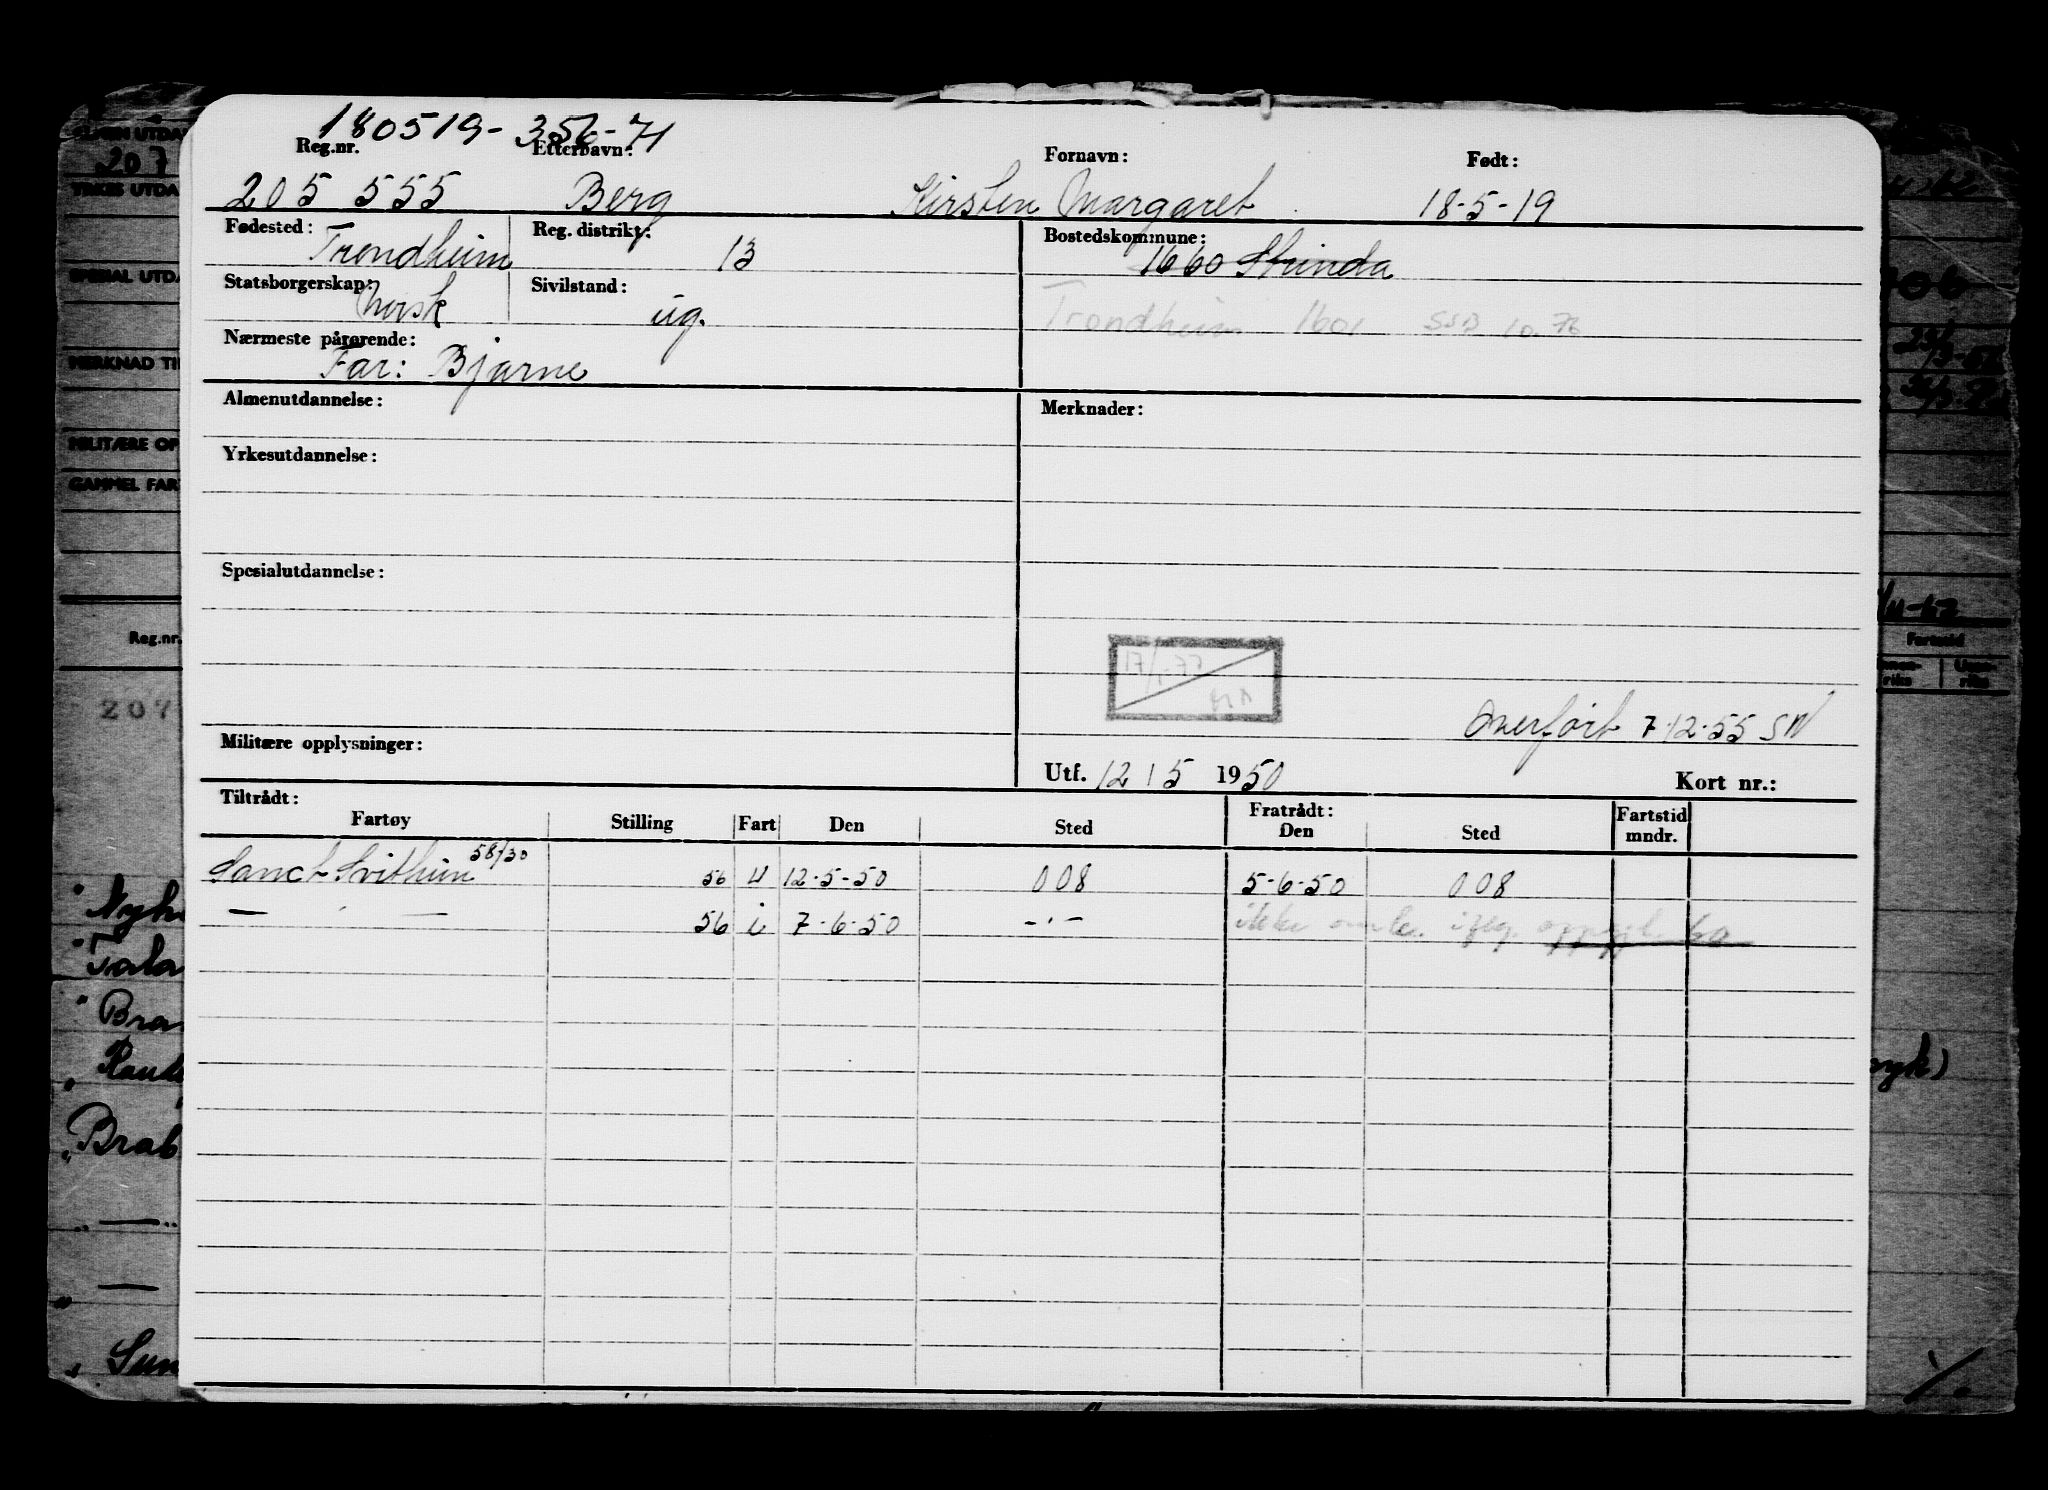 180519-356-71
Reg.nr. Etternavn: Fornavn: Født:
205 555 Berg Kirsten Margaret 18-5-19
Fødested: Trondheim Reg. distrikt: 13 Bostedskommune: 1660 Strinda
Statsborgerskap: Norsk Sivilstand: ug. Trondheim 1601 SSB 10.76
Nærmeste pårørende:
Far: Bjarne
Almenutdannelse: Merknader:
Yrkesutdannelse:
Spesialutdannelse:
17/1-77
Overført 7-12-55 SN
Militære opplysninger:
Utf. 12/5 1950 Kort nr.:
Tiltrådt: Fratrådt: Fartstid
Fartøy Stilling Fart Den Sted Den Sted mndr.
Sanct Svithun 58/30 56 U 12-5-50 008 5-6-50 008
— ' — 56 i 7-6-50 -'- ikke
Reg.nr.
207
Fartstid